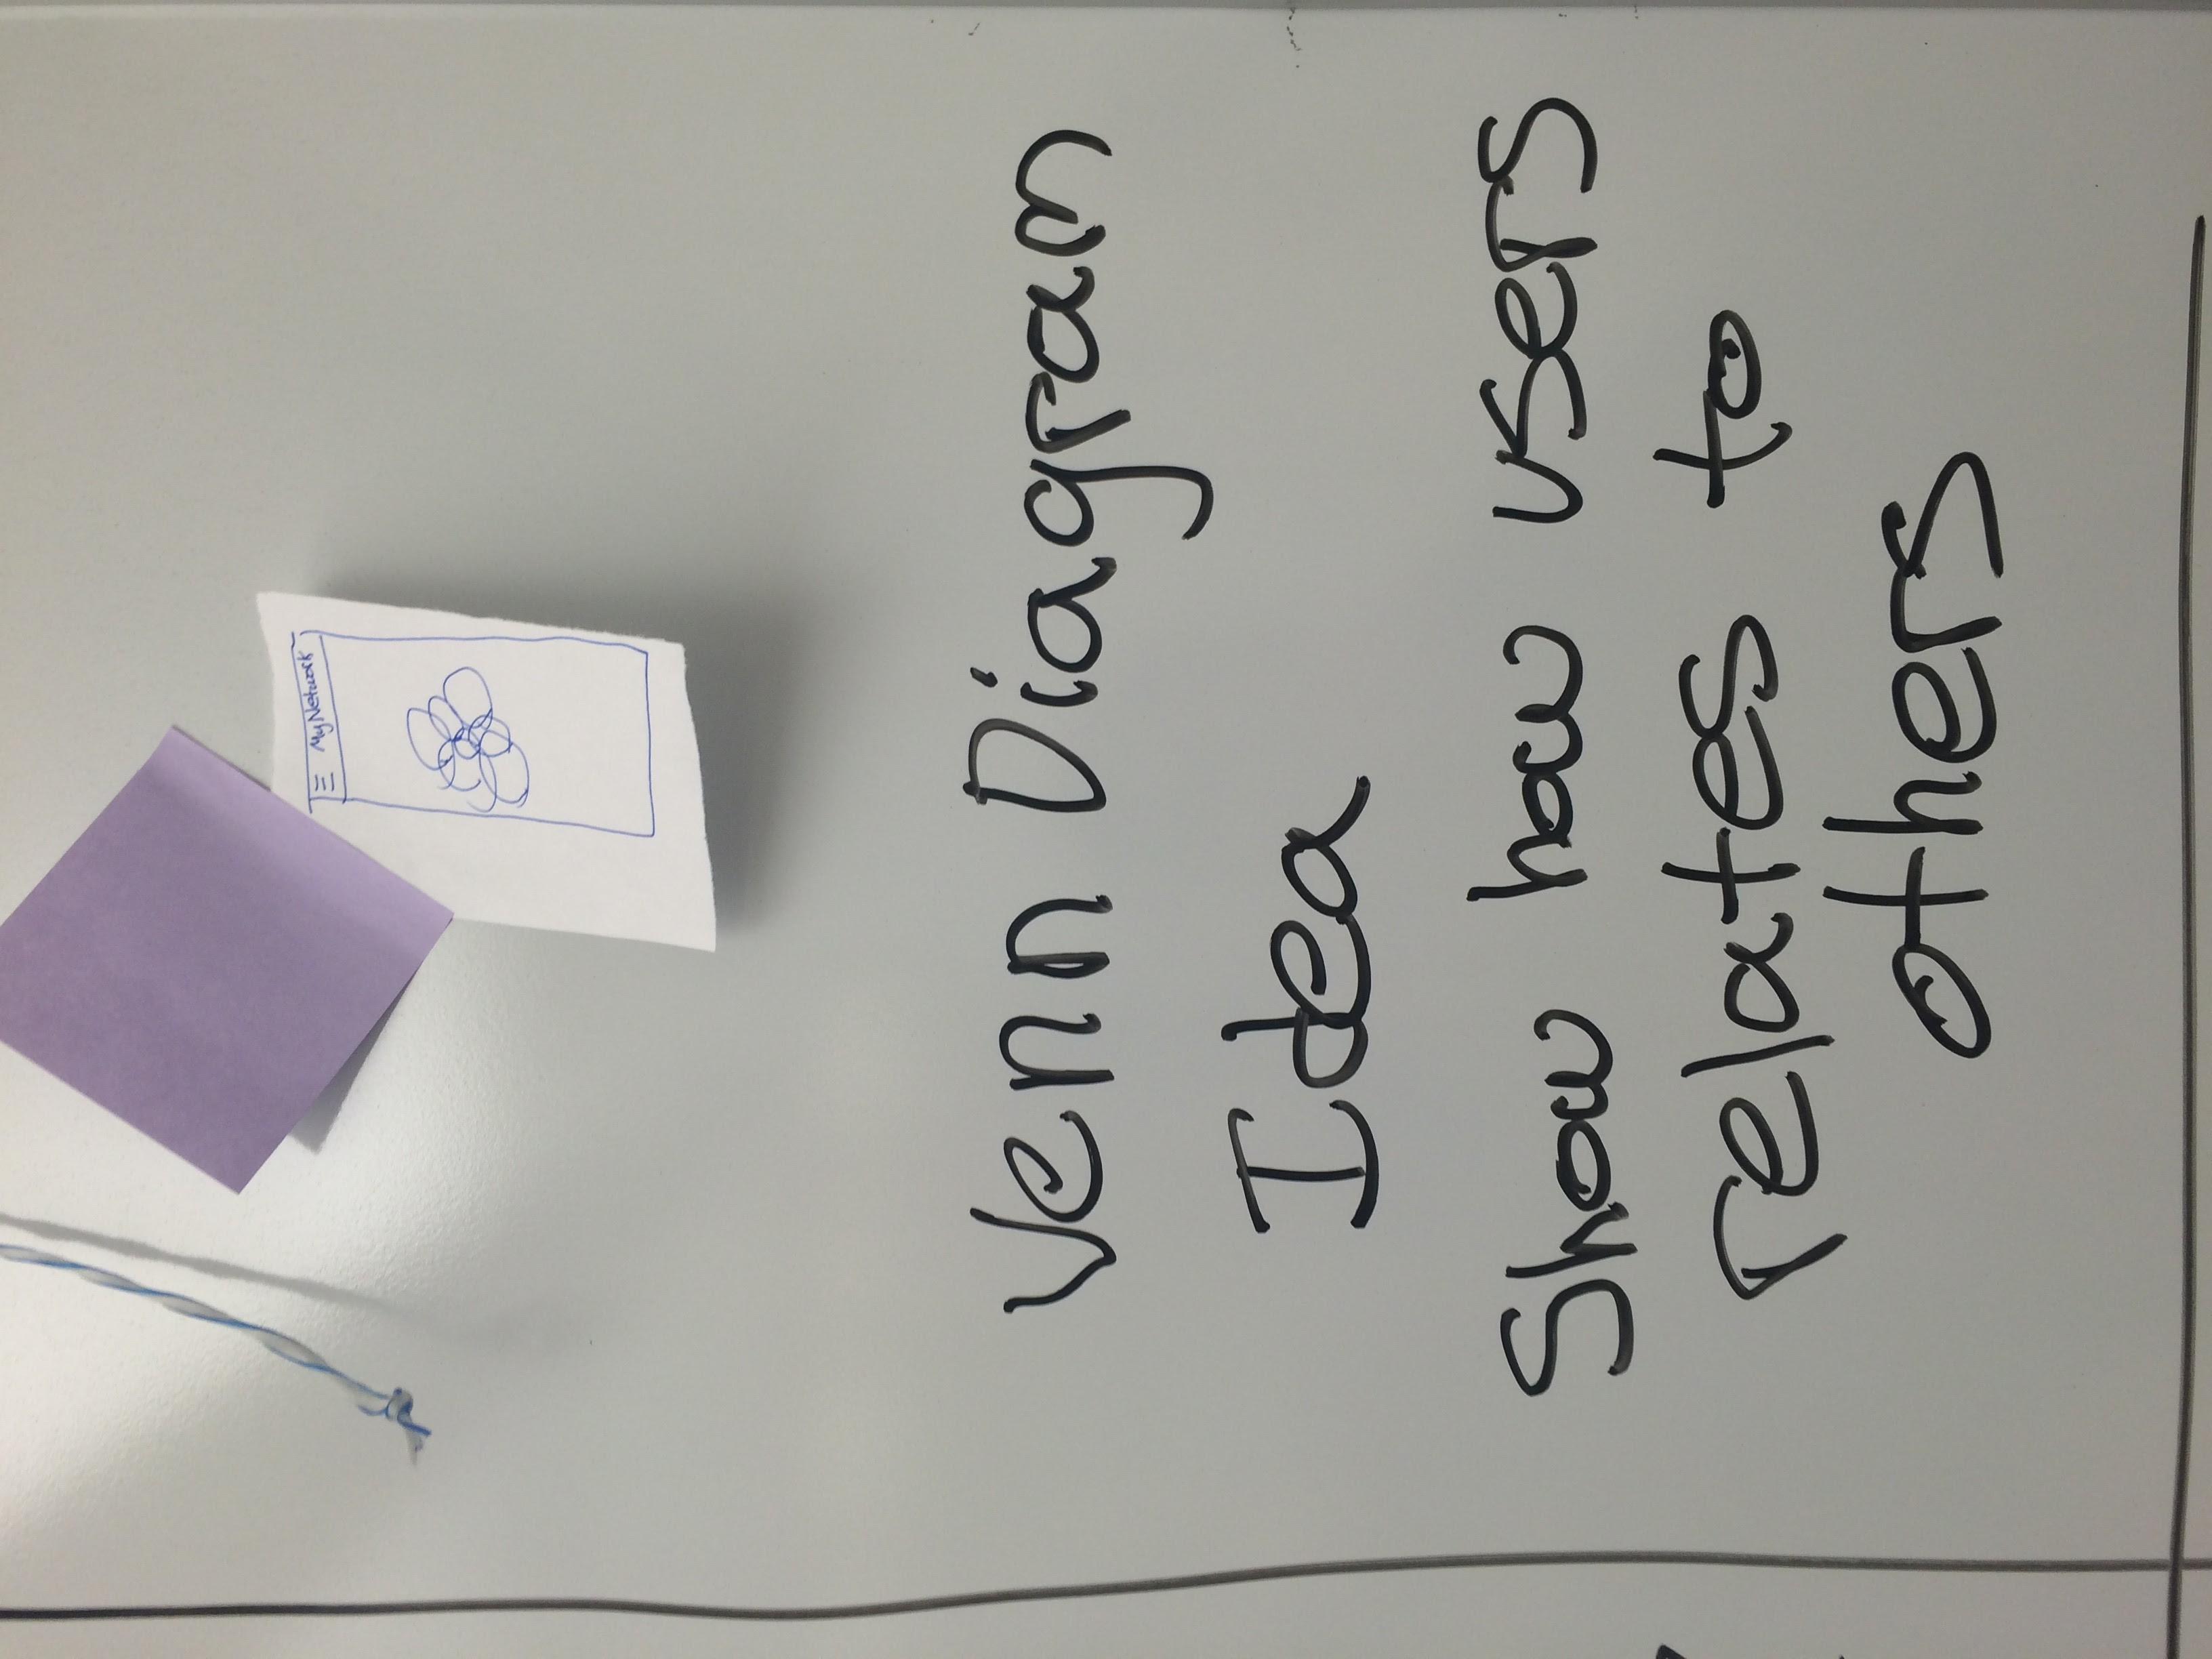 My Network
Venn Diagram
Idea
Show how users
relates to
others